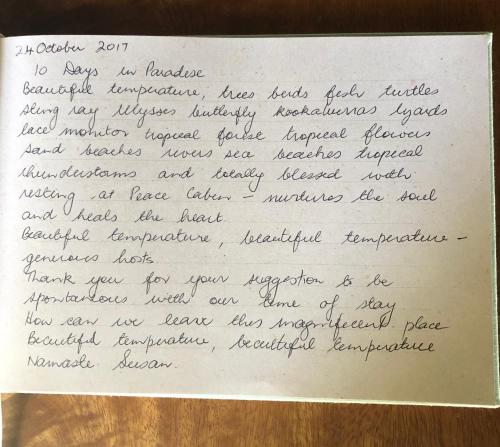 24 October 2017
10 Days in Paradise
Beautiful temperature, trees birds fish turtles
sting ray Ulysses butterfly kookaburras lizards
lace monitor tropical forest tropical flowers
sand beaches rivers sea beaches tropical
thunderstorms and totally blessed with
resting at Peace Cabin – nurtures the soul
and heals the heart
Beautiful temperature, beautiful temperature –
generous hosts.
Thank you for your suggestion to be
spontaneous with our time of stay
How can we leave this magnificent place
Beautiful temperature, beautiful temperature
Namaste Susan.